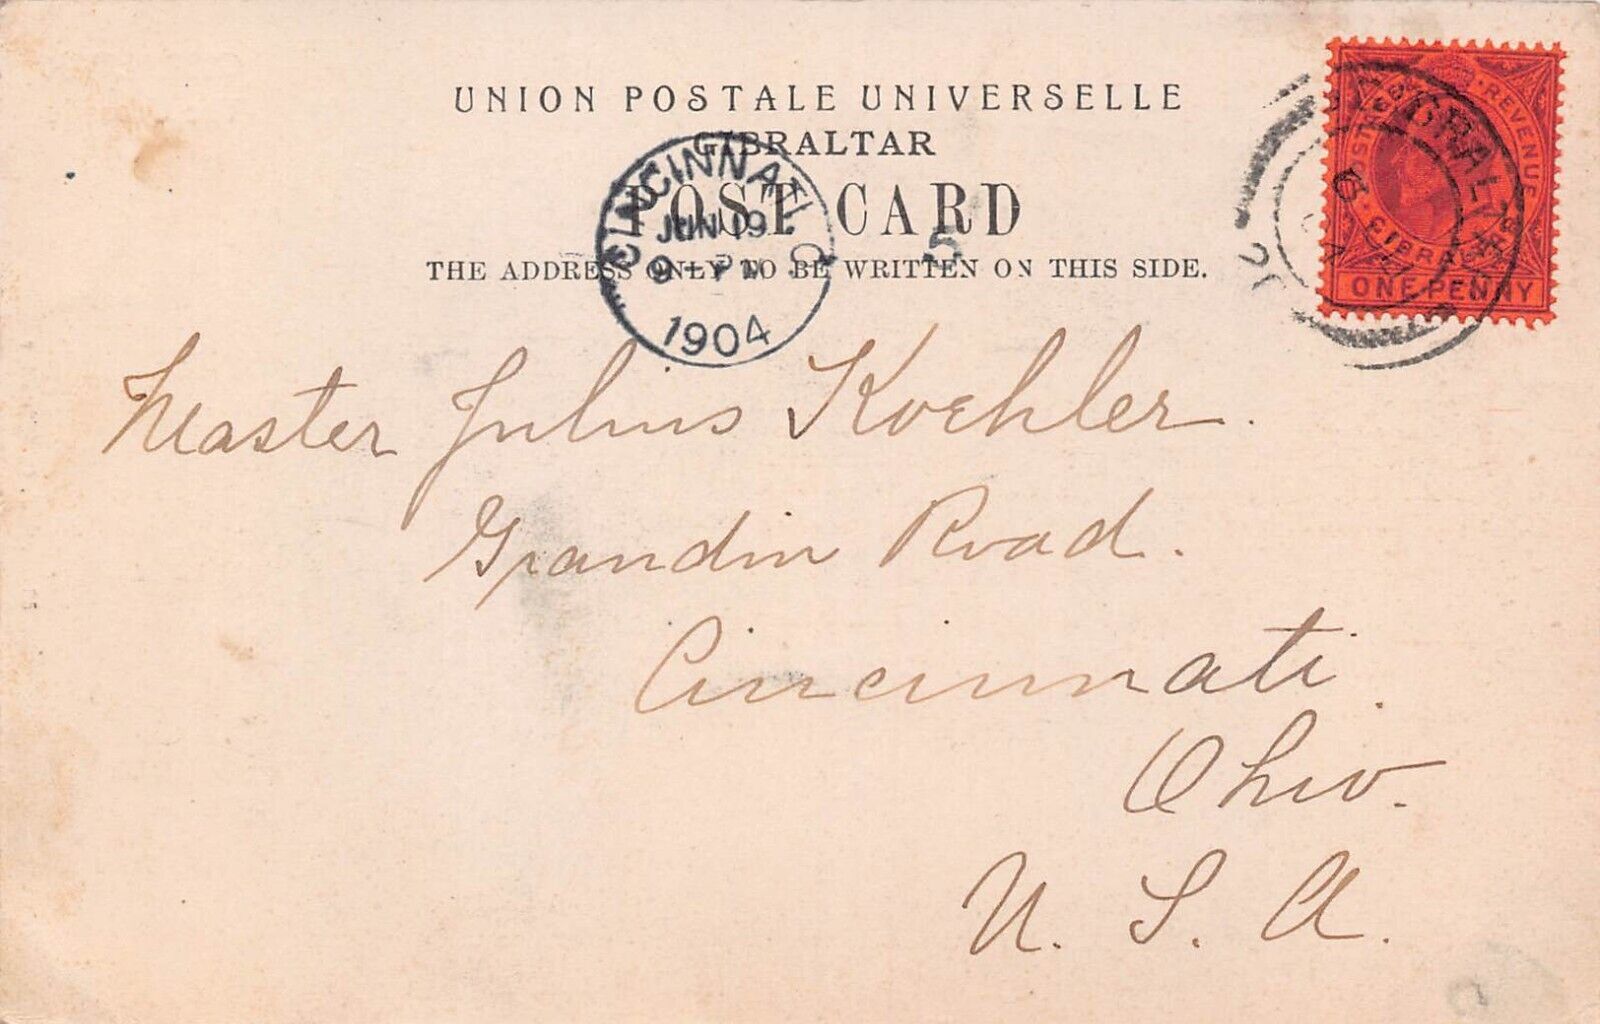 UNION POSTALE UNIVERSELLE
GIBRALTAR
POST CARD
THE ADDRESS ONLY TO BE WRITTEN ON THIS SIDE.
CINCINNATI, O
JUN 19
9-PM
1904
5
GIBRALTAR
POSTAGE & REVENUE
GIBRALTAR
ONE PENNY
Master Julius Koehler.
Grandin Road.
Cincinnati.
Ohio.
U. S. A.